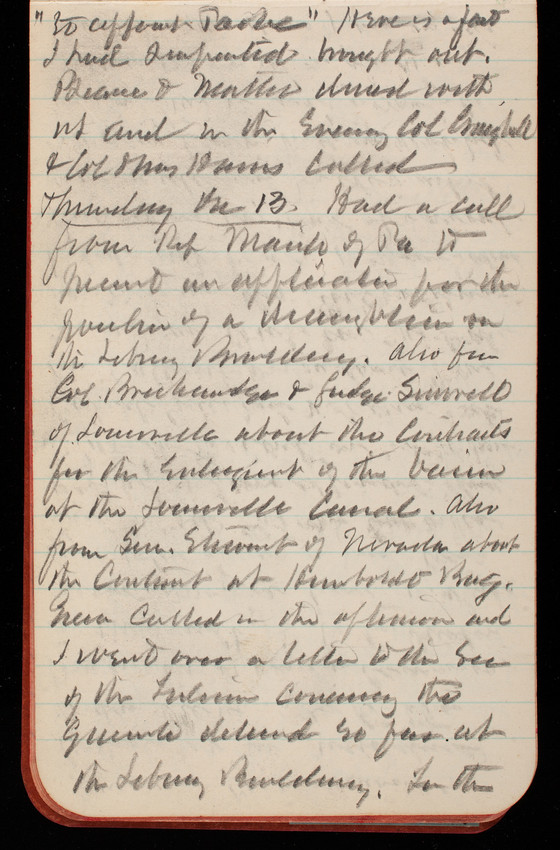 "30 offount Taabe" Here is a fact
I had suspected brought out.
& Mattes dined with
us and in the Evening Col
& Col Thos Harris called
Thursday Dec 13. Had a call
from Rep of Pa to
present an application for the
position of a draughtsman on
the Library Building. Also from
Col. Breckenridge & Judge
of Louisville about the Contracts
for the Enlargement of the basin
at the Louisville Canal. Also
from Sen. Stewart of Nevada about
the Contract at Humboldt Bay.
Green called in the afternoon and
I went over a letter to the Sec
of the Interior concerning the
Granite delivered so far at
the Library Building. In the